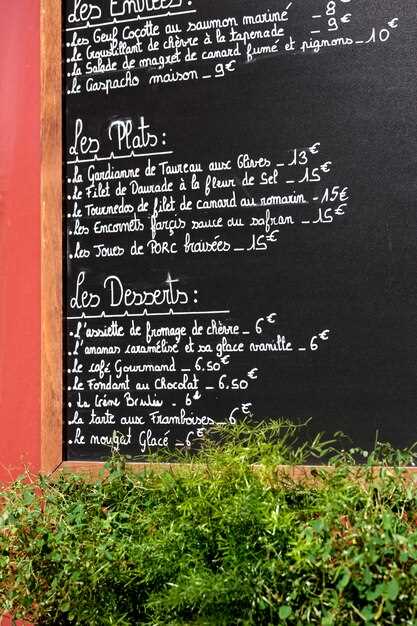 Les Entrées :
. Les Oeuf Cocotte au saumon mariné _ 8€
. Le Croustillant de chèvre à la tapenade _ 9€
. La Salade de magret de canard fumé et pignons _ 10€
. Le Gaspacho maison _ 9€
Les Plats :
. La Gardianne de Taureau aux Olives _ 13€
. Le Filet de Daurade à la fleur de Sel _ 15€
. Le Tournedos de filet de canard au romarin - 15€
. Les Encornets farçis sauce au safran _ 15€
. Les Joues de Porc braisées _ 15€
Les Desserts :
. L'assiette de fromage de chèvre _ 6€
. L'ananas caramélisé et sa glace vanille _ 6€
. Le café Gourmand _ 6.50€
. Le Fondant au Chocolat _ 6.50€
. La Crème Brulée _ 6€
. La tarte aux Framboises _ 6€
. Le nougat Glacé _ 6€